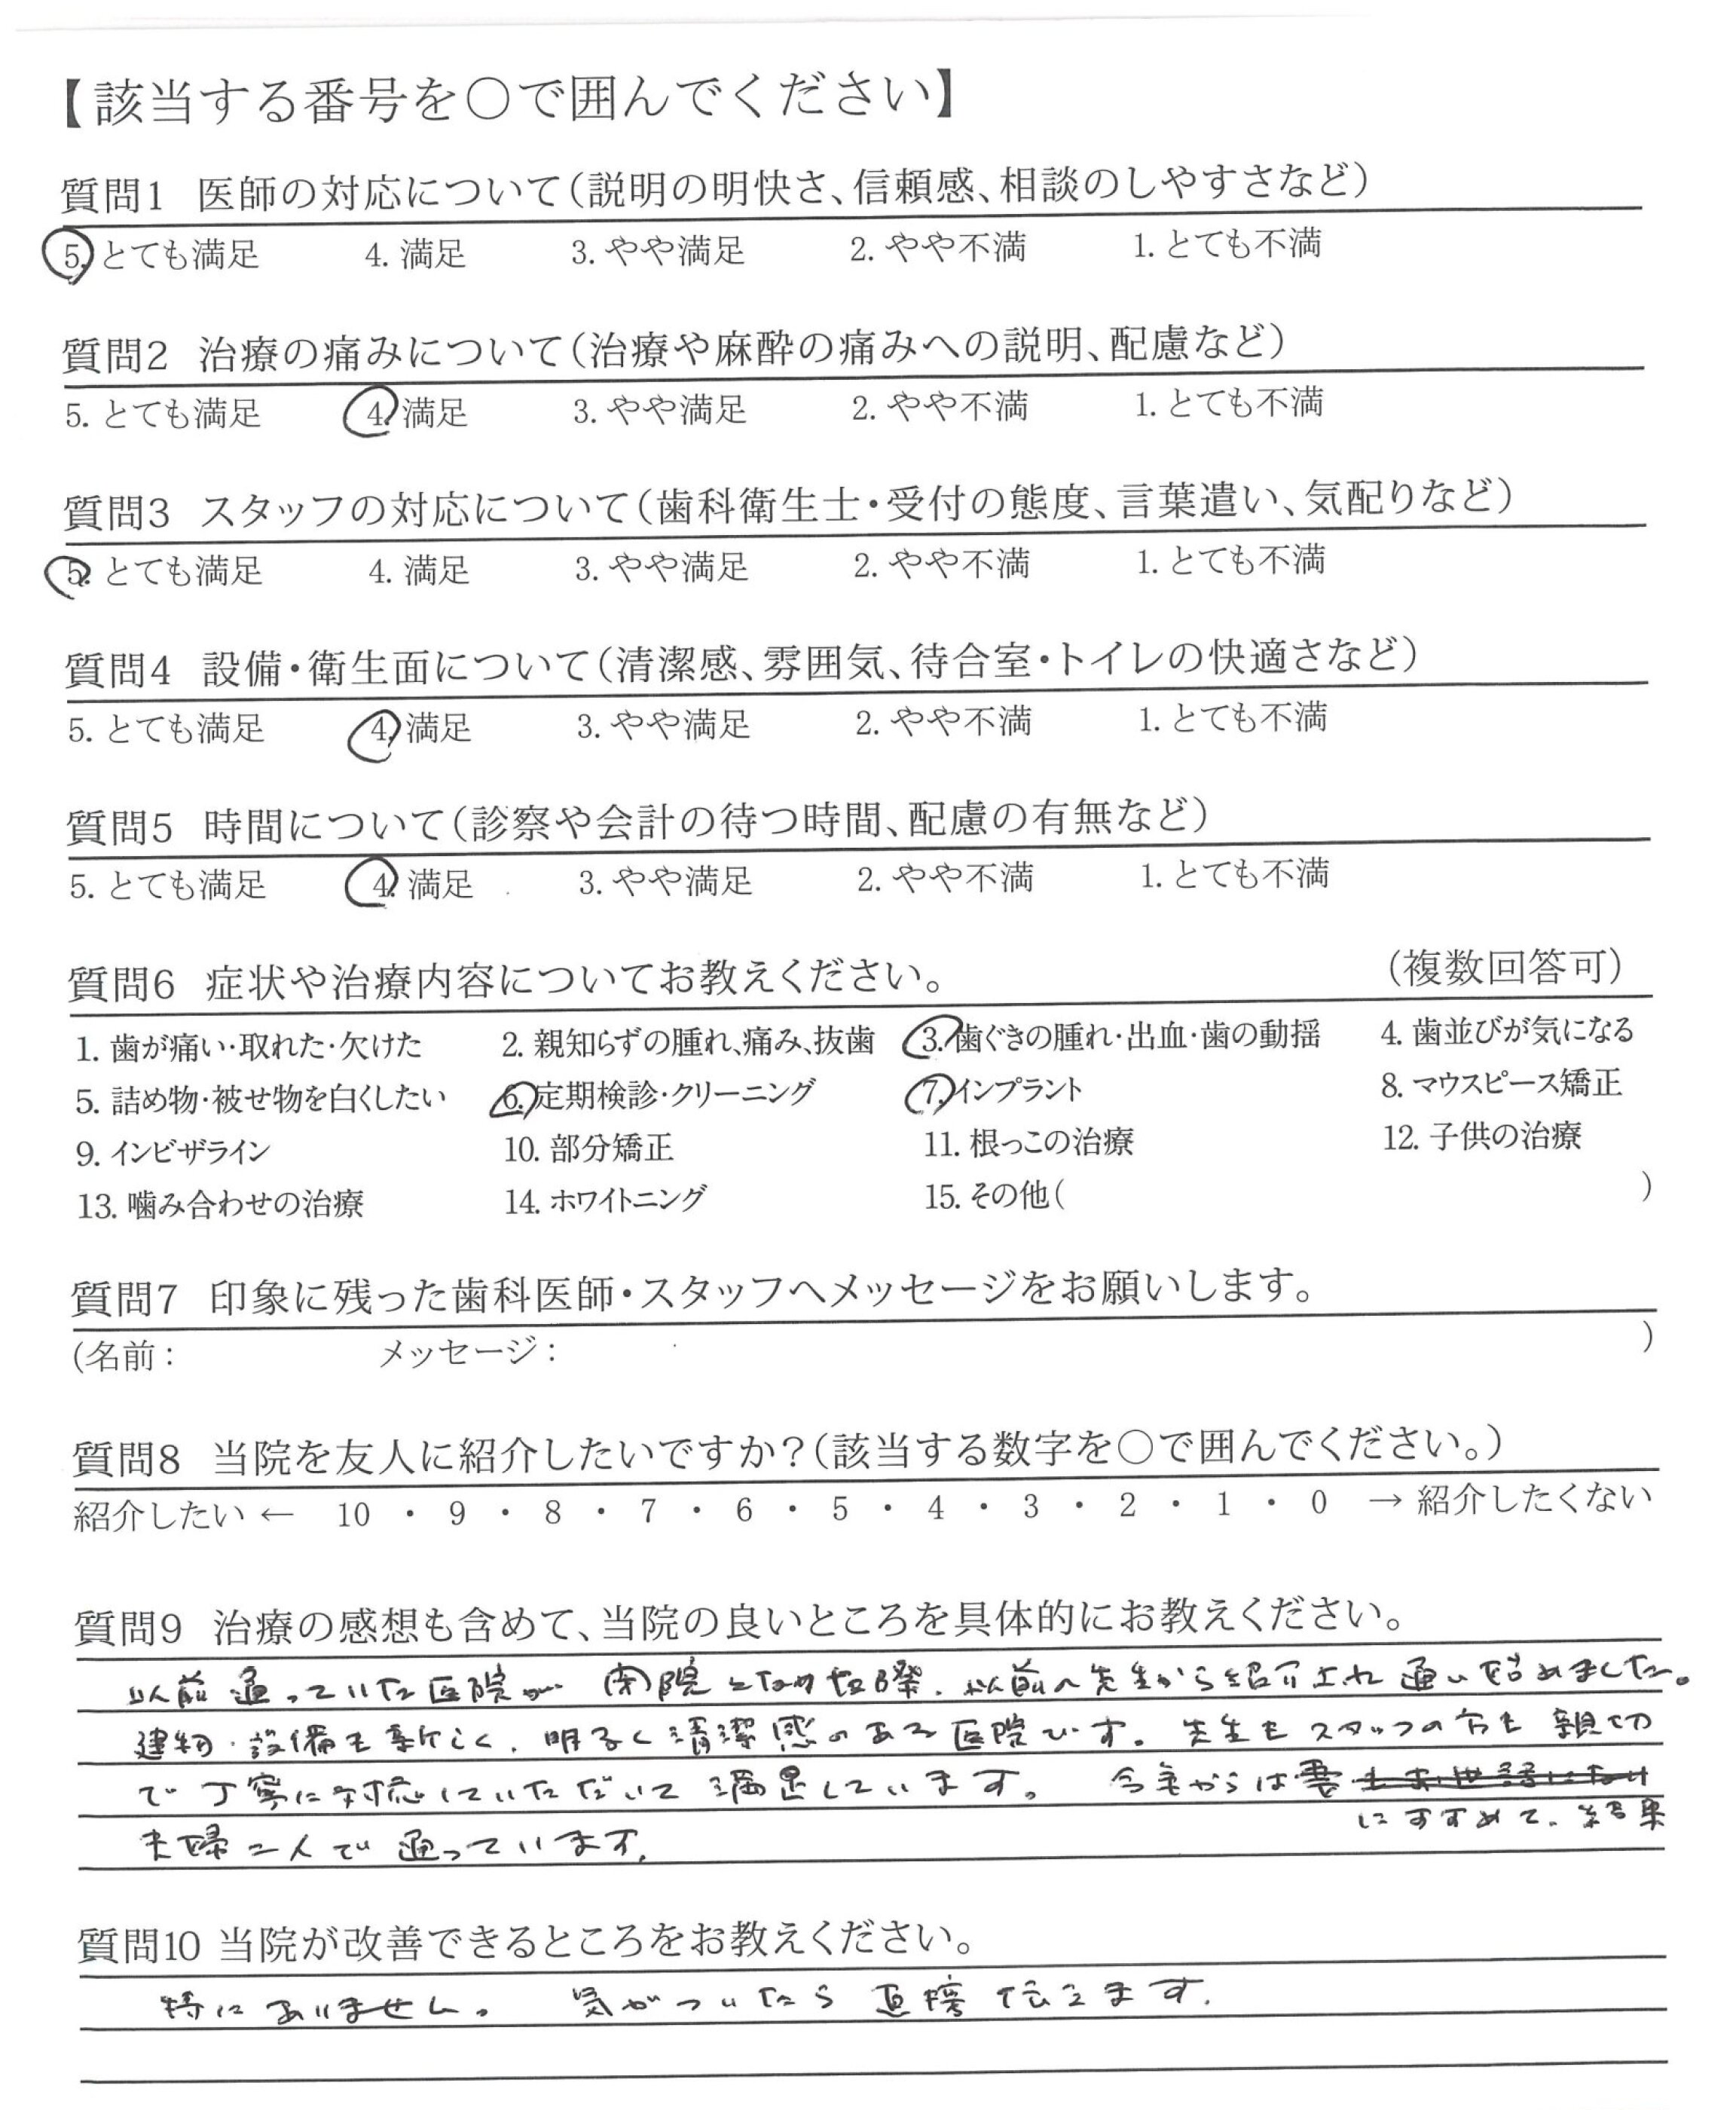 【該当する番号を○で囲んでください】
質問1 医師の対応について(説明の明快さ、信頼感、相談のしやすさなど)
5. とても満足 4. 満足 3. やや満足 2. やや不満 1. とても不満
質問2 治療の痛みについて(治療や麻酔の痛みへの説明、配慮など)
5. とても満足 4. 満足 3. やや満足 2. やや不満 1. とても不満
質問3 スタッフの対応について(歯科衛生士・受付の態度、言葉遣い、気配りなど)
5. とても満足 4. 満足 3. やや満足 2. やや不満 1. とても不満
質問4 設備・衛生面について(清潔感、雰囲気、待合室・トイレの快適さなど)
5. とても満足 4. 満足 3. やや満足 2. やや不満 1. とても不満
質問5 時間について(診察や会計の待つ時間、配慮の有無など)
5. とても満足 4. 満足 3. やや満足 2. やや不満 1. とても不満
質問6 症状や治療内容についてお教えください。 (複数回答可)
1. 歯が痛い・取れた・欠けた 2. 親知らずの腫れ、痛み、抜歯 3. 歯ぐきの腫れ・出血・歯の動揺 4. 歯並びが気になる
5. 詰め物・被せ物を白くしたい 6. 定期検診・クリーニング 7. インプラント 8. マウスピース矯正
9. インビザライン 10. 部分矯正 11. 根っこの治療 12. 子供の治療
13. 噛み合わせの治療 14. ホワイトニング 15. その他( )
質問7 印象に残った歯科医師・スタッフへメッセージをお願いします。
(名前: メッセージ: )
質問8 当院を友人に紹介したいですか?(該当する数字を○で囲んでください。)
紹介したい ← 10 ・ 9 ・ 8 ・ 7 ・ 6 ・ 5 ・ 4 ・ 3 ・ 2 ・ 1 ・ 0 → 紹介したくない
質問9 治療の感想も含めて、当院の良いところを具体的にお教えください。
以前通っていた医院が閉院となった際、以前の先生から紹介され通い始めました。
建物・設備も新しく、明るく清潔感のある医院です。先生もスタッフの方も親切
で丁寧に対応していただいて満足しています。 今年からは妻
にすすめて、結果
夫婦二人で通っています。
質問10 当院が改善できるところをお教えください。
特にありません。 気がついたら直接伝えます。